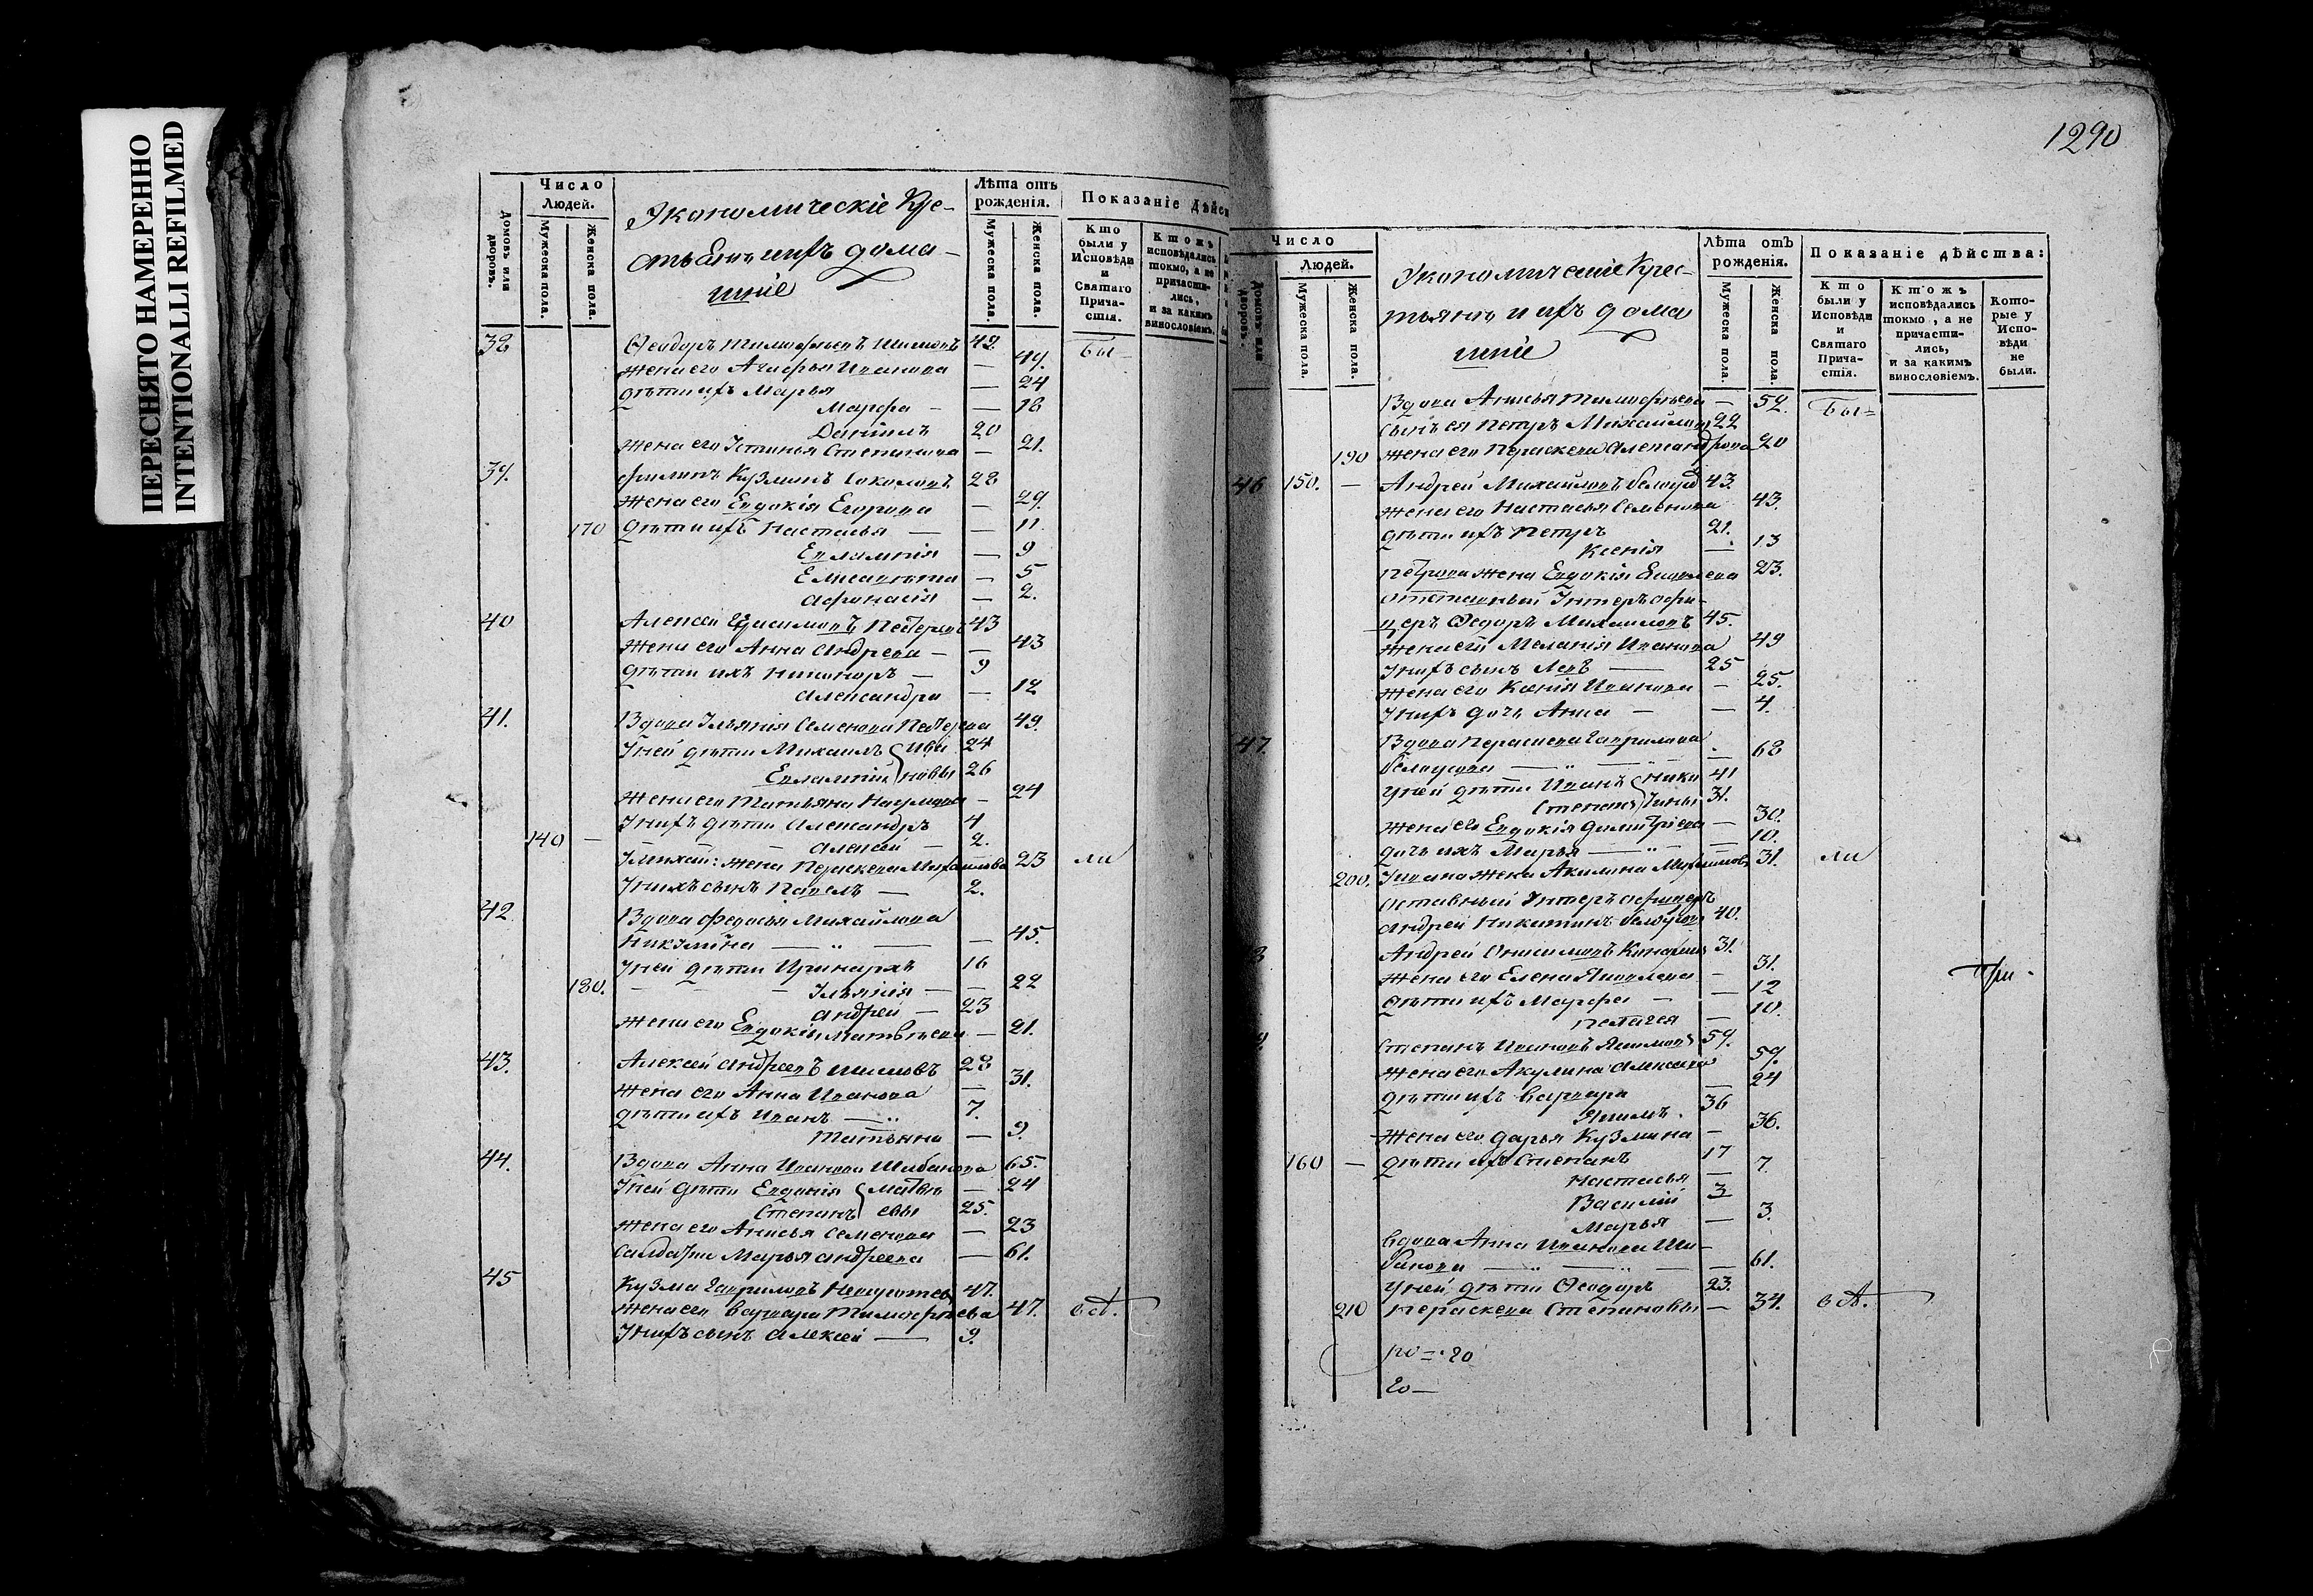 ПЕРЕСНЯТО НАМЕРЕННО
INTENTIONALLI REFILMED
Число
Людей.
Домовъ или дворовъ.
Мужеска пола.
Женска пола.
Экономическіе Кре-
стьянъ ихъ дома-
шніе
Лѣта отъ
рожденія.
Мужеска пола.
Женска пола.
Показаніе дѣйс
Кто
были у
Исповѣди
и
Святаго
Прича-
стія.
Ктожъ
исповѣдались
токмо, а не
причасти-
лись,
и за какимъ
винословіемъ.
38 Ѳеодоръ Тимофѣевъ 49.
жена его Агафья Иванова — 49. Бы-
дѣти ихъ Марья — 24
Марфа — — 18
Даніилъ 20
жена его Устинья Степанова — 21.
39. Филипъ Кузминъ Соколовъ 28
жена его Евдокія Егорова — 29.
170 дѣти ихъ Настасья — — 11.
Евлампія — 9
Елисавета — 5
Афонасія — 2.
40 Алексей 43
жена его Анна Андреева — — 43
дѣти ихъ Никоноръ — 9
Александра — 12
41. Вдова Ульянія Семенова 49.
У ней дѣти Михаилъ Ива 24
Евлампій новы 26
жена его Татьяна Наумова — 24
У нихъ дѣти Александръ 4
140 — Алексей — 2.
Михай: жена Параскева Михаилова 23 ли
У нихъ сынъ Павелъ — 2.
42 Вдова Федосья Михайлова
Никулина — „ — — 45.
У ней дѣти Иринархъ 16
180. — — — Ульянія — — 22
Андрей — 23
жена его Евдокія Матвѣева — 21.
43. Алексей Андреевъ 28
жена его Анна Иванова — 31.
дѣти ихъ Иванъ — „ 7.
Татьяна — 9.
44. Вдова Анна Иванова Шибанова 65.
У ней дѣти Евдокія Матвѣ — 24
Степанъ евы 25.
жена его Анисья Семенова — 23
Салдатка Марья Андреева — 61.
45 Кузма Гавриловъ 47.
жена его Варвара Тимофѣева 47. всѣ.
У нихъ сынъ Алексей — 9.
1290
Число
Людей.
Домовъ или дворовъ.
Мужеска пола.
Женска пола.
Экономическіе Крес-
тьянъ и ихъ дома
шніе
Лѣта отъ
рожденія.
Мужеска пола.
Женска пола.
Показаніе дѣйства:
Кто
были у
Исповѣди
и
Святаго
Прича-
стія.
Ктожъ
исповѣдались
токмо, а не
причасти-
лись,
и за какимъ
винословіемъ.
Кото-
рые у
Испо-
вѣди
не
были.
Вдова Анисья Тимофѣева — 52. Бы=
Сынъ ея Петръ Михайловъ 22
190 жена его Параскева Александрова 20
46 150. — Андрей Михайловъ 43.
жена его Настасья Семенова 43.
дѣти ихъ Петръ 21.
Ксенія — 13
Петрова жена Евдокія 23.
отставный Унтеръ офи-
церъ Ѳедоръ Михаиловъ 45.
жена его Меланія Иванова 49
У нихъ сынъ Левъ — 25
жена его Ксенія Иванова — 25.
У нихъ дочь Анна — — 4.
47. Вдова Параскева Гаврилова
Белоусова — „ — — 68
У ней дѣти Иванъ Ники 41
Степанъ тины 31.
жена его Евдокія Димитріева — 30.
дочь ихъ Марья — „ — 10.
200. Ивана жена Акилина Михаилова 31. ли
отставный Унтеръ офицеръ
Андрей Никитинъ Белоусовъ 40.
8 Андрей Онисимовъ 31.
жена его Елена Яковлева — 31.
дѣти ихъ Марфа — — 12
Пелагея — 10.
Степанъ Ивановъ 59.
жена его Акулина Алексеева 59.
дѣти ихъ Варвара — 24
Якимъ. 36
жена его Дарья Кузмина — 36.
160 — дѣти ихъ Степанъ 17
Настасья — 7.
Василій 3
Марья — 3.
Вдова Анна Иванова Ши-
банова — „ — „ — — 61.
У ней дѣти Ѳеодоръ 23.
210 Параскева Степановы — 34. всѣ.